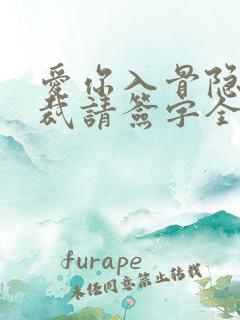 愛你入骨隐
裁請簽字全
furape
未经同意禁止转载